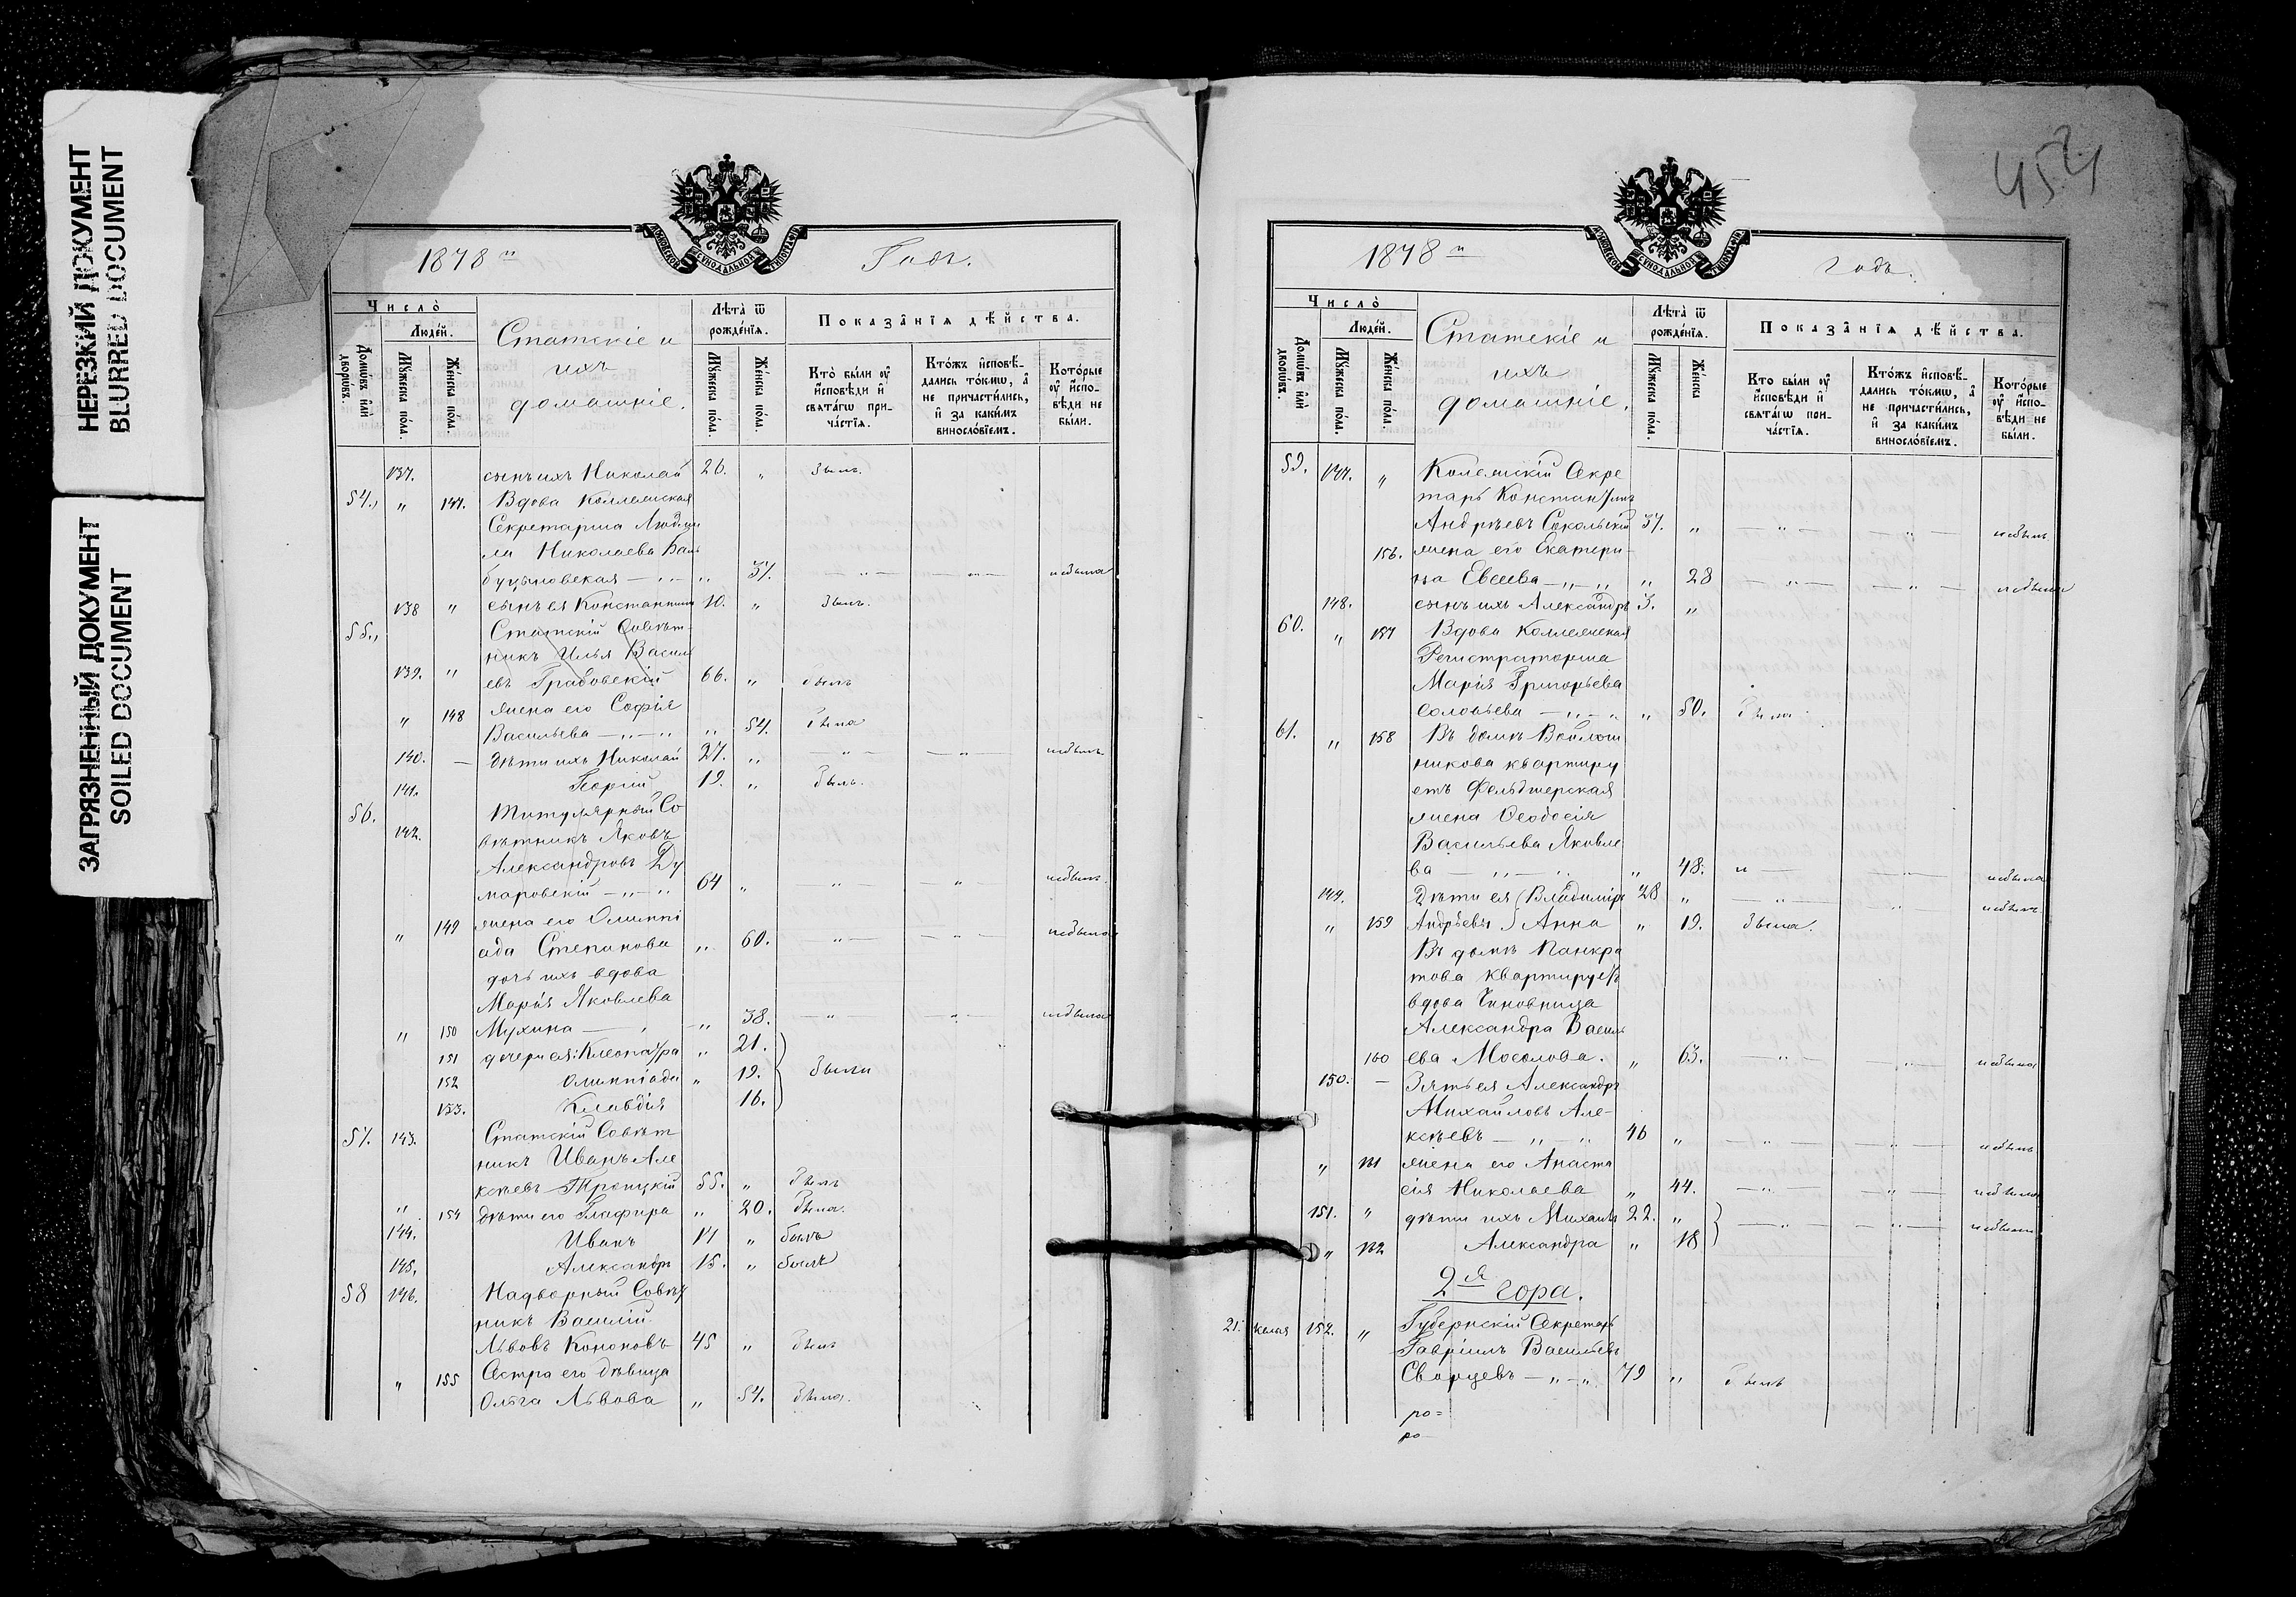 НЕРЕЗКИЙ ДОКУМЕНТ
BLURRED DOCUMENT
ЗАГРЯЗНЕННЫЙ ДОКУМЕНТ
SOILED DOCUMENT
МОСКОВСКОЙ СѴНОДАЛЬНОЙ ТИПОГРАФІИ
1878 й Годъ.
Число̀
Люде́й.
Домѡ́въ и҆лѝ дворѡ́въ.
Мꙋ́жеска по́ла.
Же́нска по́ла.
Статскіе и
ихъ
домашніе.
Лѣ́та ѿ рожде́нїѧ.
Мꙋ́жеска по́ла.
Же́нска по́ла.
Показа̑нїѧ дѣ́йства.
Кто̀ бы́ли ᲂу҆ и҆́сповѣди и҆ свѧта́гѡ при-
ча́стїѧ.
Кто́жъ и҆сповѣ́-
дались то́кмѡ, а҆
не причасти́лись,
и҆ за каки́мъ
винносло́вїемъ.
Кото́рые
ᲂу҆ и҆́спо-
вѣди не
бы́ли.
137. сынъ ихъ Николай 26. „ былъ.
54., „ 147. Вдова Коллежская
Секретарша Людми
ла Николаева
буцыновская — „ — „ 37. — „ — — „ — небыла
138 „ сынъ ея Константинъ 10. „ былъ.
55., Статскій Совѣт-
никъ Илья Василь
139. „ евъ Грабовскій 66. „ былъ
„ 148 жена его Софія
Васильева — „ — „ „ 54. была
140. — дѣти ихъ Николай 27. „ „ — — „ — небылъ
141. Георгій 19. „ былъ.
56. Титулярный Со
142. вѣтникъ Яковъ
Александровъ Ду
маровскій — „ — „ 64 „ — „ — — „ небылъ.
149 жена его Олимпі
„ ада Степанова „ 60. „ — — „ — небыла
дочь ихъ вдова
Марія Яковлева
„ 150 Мухина — „ — „ 38. — „ — — „ — небыла
151 дочери ея: Клеопатра „ 21.
152 Олимпіада „ 19. были
153. Клавдія 16.
57. 143. Статскій Совѣт
никъ Иванъ Але
ксѣевъ Троицкій 55. „ былъ
„ 154 дѣти его Глафира „ 20. была.
144. Иванъ 17 „ былъ
145. Александръ 15. „ былъ
58 146. Надворный Совѣт
никъ Василій
Львовъ Кононовъ 45 „ былъ
„ 155 Сестра его дѣвица
Ольга Львова „ 54. была.
452
МОСКОВСКОЙ СѴНОДАЛЬНОЙ ТИПОГРАФІИ
1878 й годъ.
Число̀
Люде́й.
Домѡ́въ и҆лѝ дворѡ́въ.
Мꙋ́жеска по́ла.
Же́нска по́ла.
Статскіе и
ихъ
домашніе.
Лѣ́та ѿ рожде́нїѧ.
Мꙋ́жеска по́ла.
Же́нска
Показа̑нїѧ дѣ́йства.
Кто бы́ли ᲂу҆ и҆́сповѣди и҆ свѧта́гѡ при-
ча́стїѧ.
Кто́жъ и҆сповѣ́-
дались то́кмѡ, а҆
не причасти́лись,
и҆ за каки́мъ
винносло́вїемъ.
Кото́рые
ᲂу҆ и҆́спо-
вѣди не
бы́ли.
59. 147. „ Колежскій Секре
тарь Константинъ
Андреевъ Сокольскій 37. „ — „ — — „ — небылъ
156. жена его Екатери-
на Евсеева — „ — „ „ 28 — „ — — „ — небыла
148. сынъ ихъ Александръ 3. „
60. „ 157 Вдова Коллежская
Регистраторша
Марія Григорьева
Соловьева — „ — „ „ 50. была
61. „ 158 Въ домѣ Войлош
никова квартиру
етъ Фельдшерская
жена Ѳеодосія
Васильева Яковле
ва — „ — „ „ 48. „ — „ небыла
149. Дѣти ея Владиміръ 28 „ — „ — „ небылъ
„ 159 Андреевы Анна „ 19. была.
Въ домѣ Панкра
това квартируетъ
вдова Чиновница
Александра Василь
160 ева Мосолова. „ 63. — „ — — „ — небыла
150. — Зять ея Александръ
Михайловъ Але-
ксѣевъ — „ — „ 46 „ — „ — — „ — небылъ
„ 161 жена его Анаста
сія Николаева „ 44. — „ — — „ — небыла
151. „ дѣти ихъ Михаилъ 22. „ — „ — — „ — небыли
„ 162 Александра „ 18
2я гора.
21. келья 152. „ Губернскій Секретарь
Гавріилъ Васильевъ
Сворцевъ — „ — „ 79 „ былъ
ро=
ро—